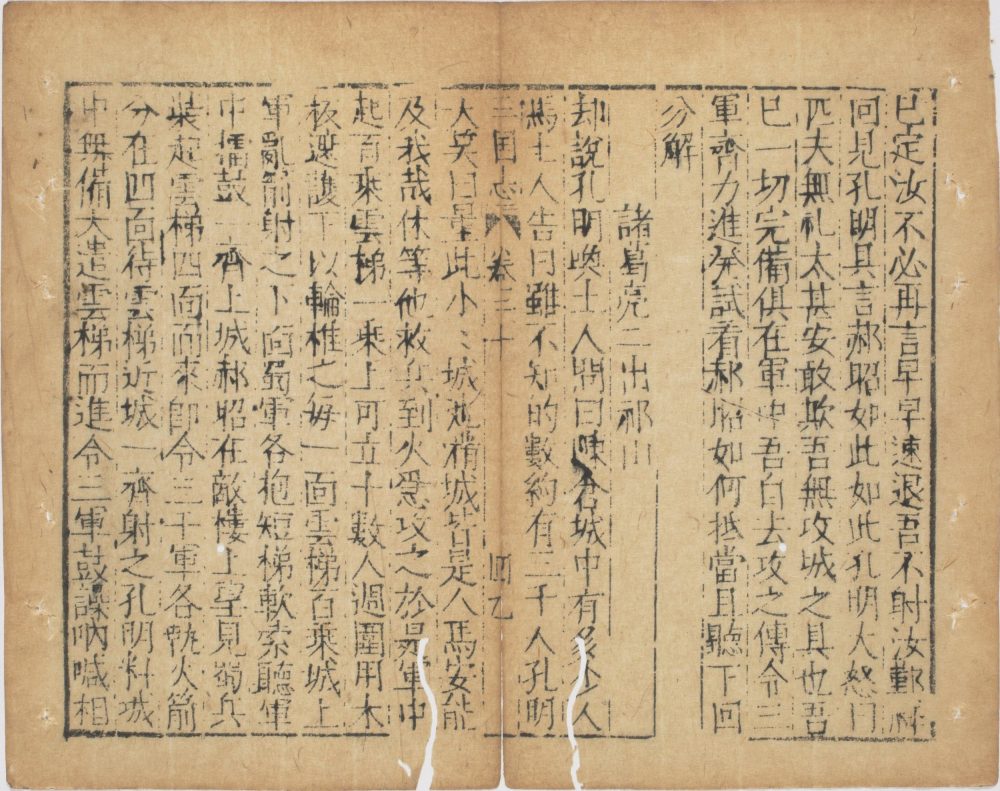 已定汝不必再言早早速退吾不射汝鄞祥
回見孔明具言郝昭如此如此孔明大怒曰
匹夫無礼太甚安敢欺吾無攻城之具也吾
已一切完備俱在軍中吾自去攻之傳令三
軍齊力進発試看郝昭如何抵當且聽下回
分解
諸葛亮二出祁山
却說孔明喚士人問曰陳倉城中有多少人
馬士人告曰雖不知的數約有三千人孔明
三国志 卷三十 四乙
大笑曰量此小〻城池稍城皆是人馬安能
及我哉休等他救兵到火急攻之於是軍中
起百乘雲梯一乘上可立十數人週圍用木
板遮護下以輪椎之每一面雲梯百乘城上
軍亂箭射之卜向蜀軍各抱短梯軟索聽軍
中擂鼓一齊上城郝昭在敵樓上望見蜀兵
裝起雲梯四面而來即令三千軍各執火箭
分在四面待雲梯近城一齊射之孔明料城
中無備大造雲梯而進令三軍鼓譟吶喊相